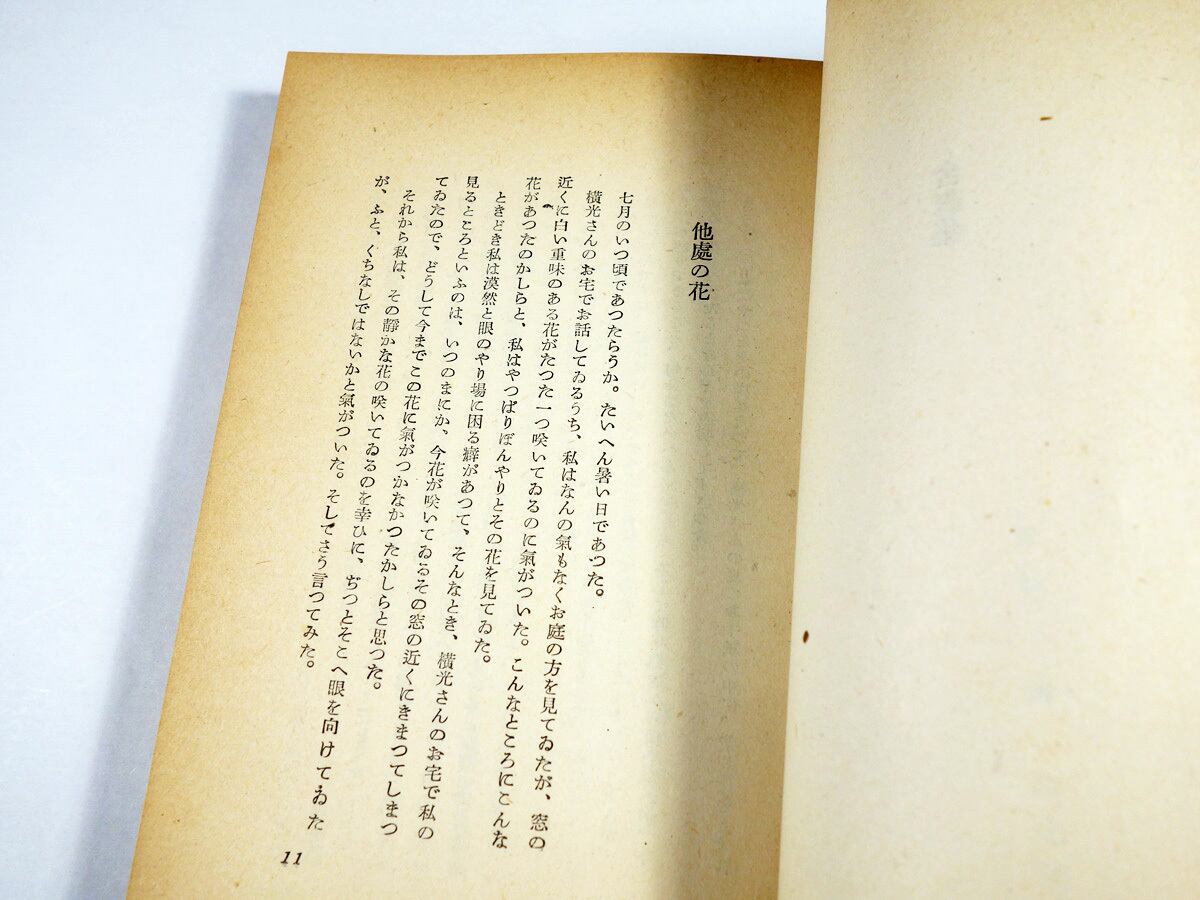 他處の花
七月のいつ頃であつたらうか。たいへん暑い日であつた。
橫光さんのお宅でお話してゐるうち、私はなんの氣もなくお庭の方を見てゐたが、窓の
近くに白い重味のある花がたつた一つ咲いてゐるのに氣がついた。こんなところにこんな
花があつたのかしらと、私はやつぱりぼんやりとその花を見てゐた。
ときどき私は漠然と眼のやり場に困る癖があつて、そんなとき、橫光さんのお宅で私の
見るところといふのは、いつのまにか、今花が咲いてゐるその窓の近くにきまつてしまつ
てゐたので、どうして今までこの花に氣がつかなかつたかしらと思つた。
それから私は、その靜かな花の咲いてゐるのを幸ひに、ぢつとそこへ眼を向けてゐた
が、ふと、くちなしではないかと氣がついた。そしてさう言つてみた。
11